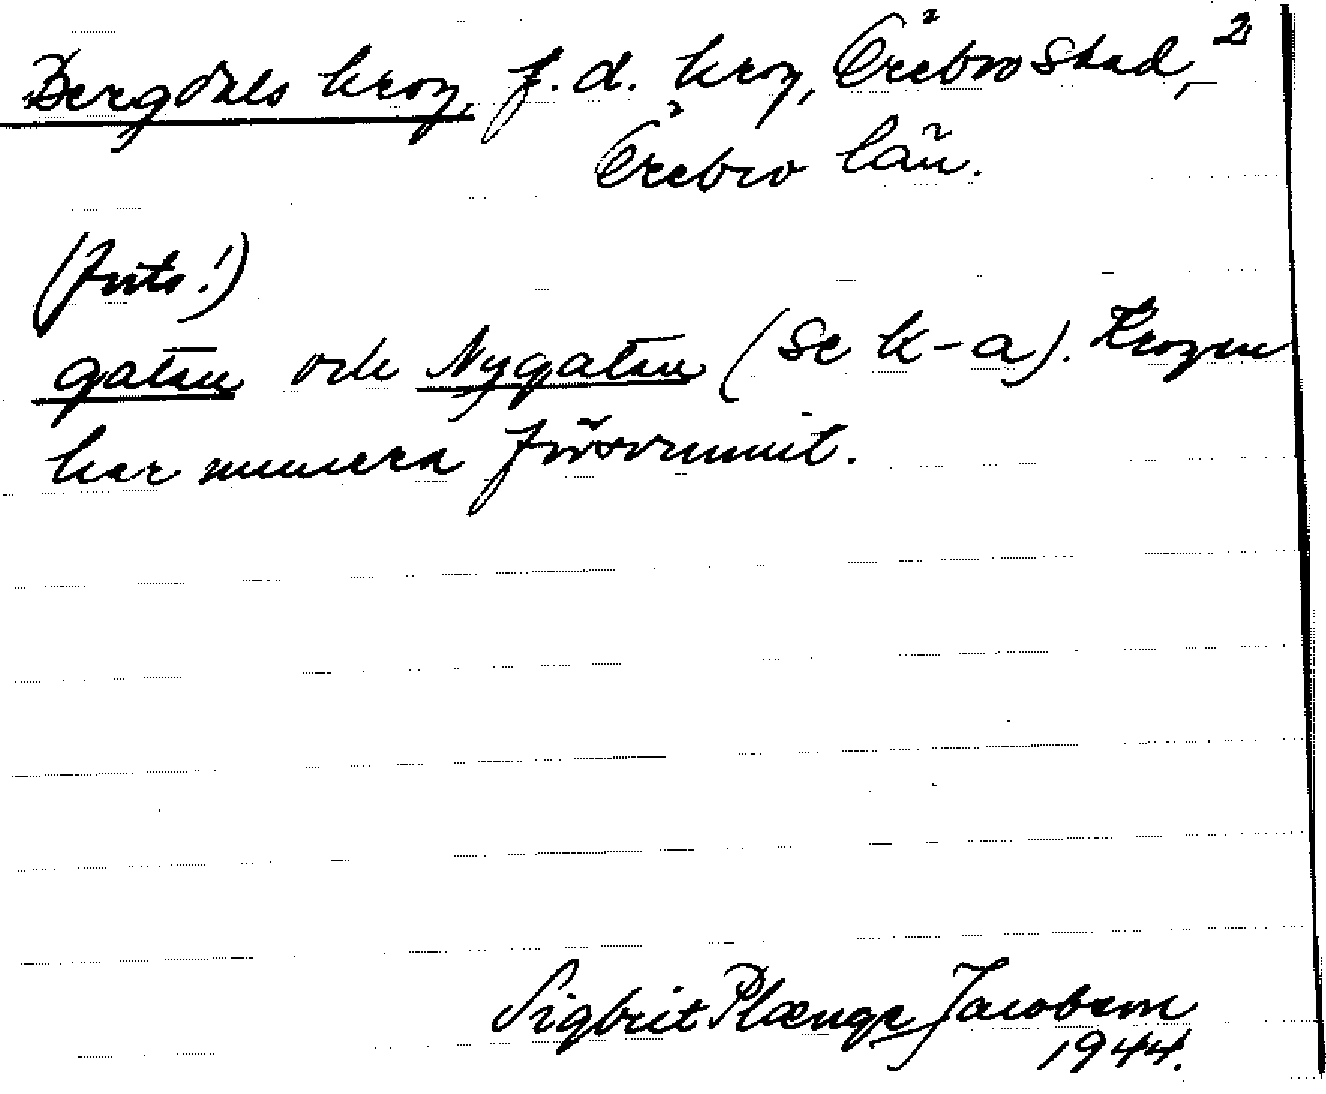 Bergdals krog, f.d. krog, Örebro stad, 2
Örebro län.
(forts.!)
gatan och Nygatan (se k-a). Krogen
har numera försvunnit.
Sigbrit Plænge Jacobson
1944.